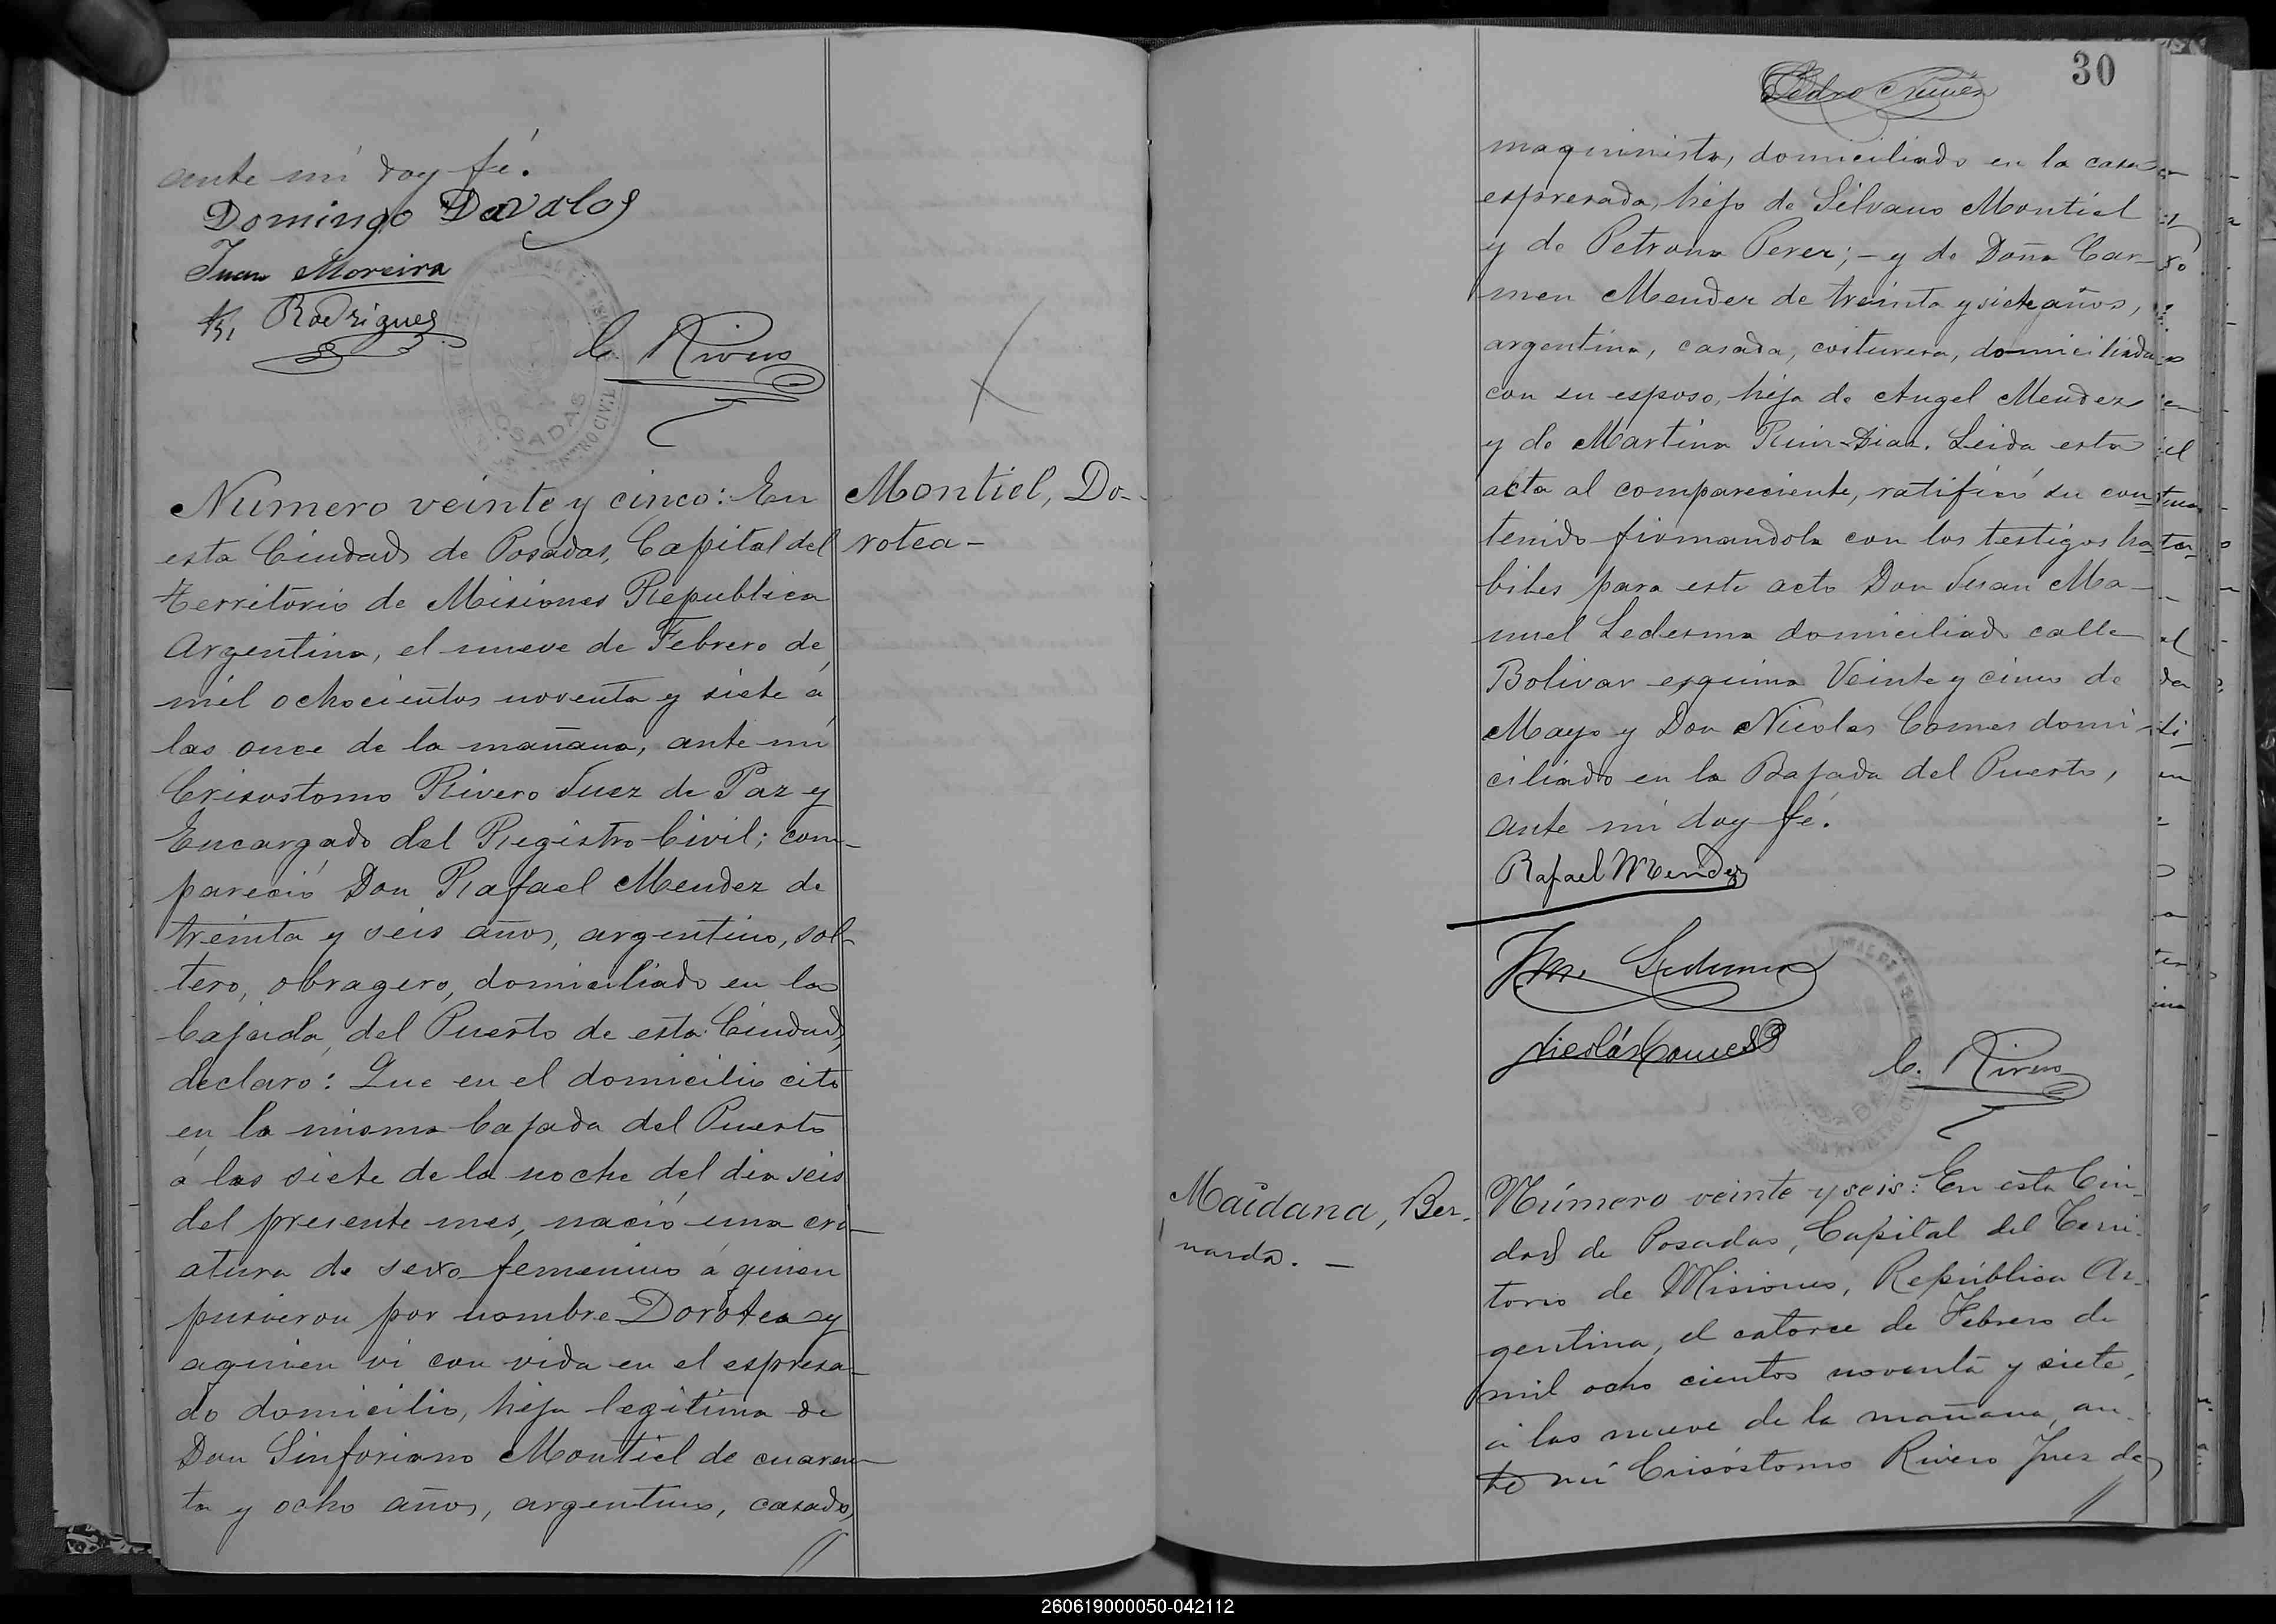 ante mí doy fé.
Domingo Davalos
Juan Moreira
Rodrigues
C. Rivero
POSADAS
Montiel, Do-
rotea-
Numero veinte y cinco: En
esta Ciudad de Posadas, Capital del
territorio de Misiones Republica
Argentina, el nueve de Febrero de
mil ochocientos noventa y siete á
las once de la mañana, ante mí
Crisostomo Rivero Juez de Paz y
Encargado del Registro Civil; com-
pareció Don Rafael Mendez de
treinta y seis años, argentino, sol-
tero, obragero, domiciliado en la
bajada del Puerto de esta Ciudad,
declaro: Que en el domicilio cito
en la misma bajada del Puerto
á las siete de la noche del dia seis
del presente mes, nació una cri-
atura de sexo femenino á quien
pusieron por nombre Dorotea y
aquien vi con vida en el espresa-
do domicilio, hija legitima de
Don Sinforiano Montiel de cuaren-
ta y ocho años, argentino, casado,
30
Pedro Nuñez
maquinista, domiciliado en la casa
espresada, hijo de Silvano Montiel
y de Petrona Perez; - y de Doña Car-
men Mendez de treinta y siete años,
argentina, casada, costurera, domiciliada
con su esposo, hija de Angel Mendez
y de Martina Ruiz Diaz. Leida esta
acta al compareciente, ratificó su con-
tenido firmandola con los testigos ha-
biles para este acto Don Juan Ma-
nuel Ledesma domiciliado calle
Bolivar esquina Veinte y cinco de
Mayo y Don Nicolas Comes domi-
ciliado en la Bajada del Puerto,
ante mí doy fé.
Rafael Mendez
Jm. Ledesma
Nicolás Comes
C. Rivero
Maidana, Ber-
narda. -
Número veinte y seis: En esta Ciu-
dad de Posadas, Capital del Terri-
torio de Misiones, República Ar-
gentina, el catorce de Febrero de
mil ocho cientos noventa y siete,
á las nueve de la mañana, an-
te mí Crisóstomo Rivero Juez de
260619000050-042112